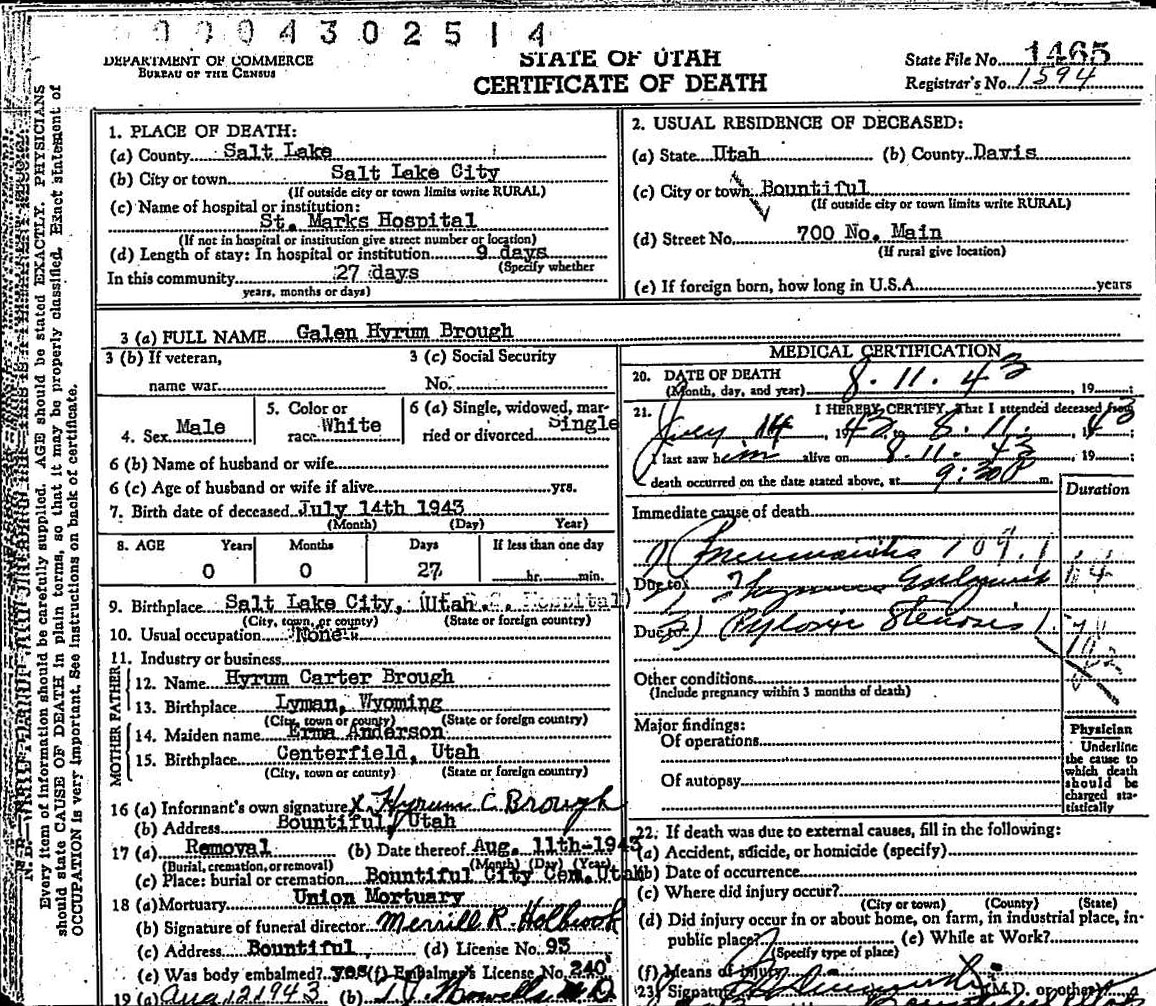 00004302514
DEPARTMENT OF COMMERCE
BUREAU OF THE CENSUS
STATE OF UTAH
CERTIFICATE OF DEATH
State File No. 1465
Registrar's No. 1594
Every item of information should be carefully supplied. AGE should be stated EXACTLY. PHYSICIANS
should state CAUSE OF DEATH in plain terms, so that it may be properly classified. Exact statement of
OCCUPATION is very important. See instructions on back of certificate.
1. PLACE OF DEATH:
(a) County Salt Lake
(b) City or town Salt Lake City
(If outside city or town limits write RURAL)
(c) Name of hospital or institution:
St. Marks Hospital
(If not in hospital or institution give street number or location)
(d) Length of stay: In hospital or institution 9 days
(Specify whether
In this community 27 days
years, months or days)
2. USUAL RESIDENCE OF DECEASED:
(a) State Utah (b) County Davis
(c) City or town Bountiful
(If outside city or town limits write RURAL)
(d) Street No. 700 No. Main
(If rural give location)
(e) If foreign born, how long in U.S.A. years
3 (a) FULL NAME Galen Hyrum Brough
3 (b) If veteran,
name war
3 (c) Social Security
No.
4. Sex Male
5. Color or
race White
6 (a) Single, widowed, mar-
ried or divorced Single
6 (b) Name of husband or wife
6 (c) Age of husband or wife if alive yrs.
7. Birth date of deceased July 14th 1943
(Month) (Day) Year)
8. AGE Years Months Days If less than one day
0 0 27 hr. min.
9. Birthplace Salt Lake City, Utah. Hospital)
(City, town, or county) (State or foreign country)
10. Usual occupation None
11. Industry or business
FATHER
12. Name Hyrum Carter Brough
13. Birthplace Lyman, Wyoming
(City, town or county) (State or foreign country)
MOTHER
14. Maiden name Erma Anderson
15. Birthplace Centerfield, Utah
(City, town or county) (State or foreign country)
16 (a) Informant's own signature x Hyrum C Brough
(b) Address Bountiful, Utah
17 (a) Removal (b) Date thereof Aug. 11th-1943
(Burial, cremation, or removal) (Month) (Day) (Year)
(c) Place: burial or cremation Bountiful City Cem. Utah
18 (a) Mortuary Union Mortuary
(b) Signature of funeral director Merrill R. Holbrook
(c) Address Bountiful (d) License No. 93
(e) Was body embalmed? yes (f) Embalmer's License No. 240
19 (a) Aug 12 1943 (b)
MEDICAL CERTIFICATION
20. DATE OF DEATH
(Month, day, and year) 8. 11. 43, 19 ;
21. I HEREBY CERTIFY, That I attended deceased from
14, 1943 to 8. 11. 43
I last saw him alive on 8. 11. 43, 19 ;
death occurred on the date stated above, at 9:30 P m.
Duration
Immediate cause of death
1) Pneumonitis 109.1
Due to 2) Thymus
Due to 3) Pyloric Stenosis
Other conditions
(Include pregnancy within 3 months of death)
Major findings:
Of operations
Of autopsy
Physician
Underline
the cause to
which death
should be
charged sta-
tistically
22. If death was due to external causes, fill in the following:
(a) Accident, suicide, or homicide (specify)
(b) Date of occurrence
(c) Where did injury occur?
(City or town) (County) (State)
(d) Did injury occur in or about home, on farm, in industrial place, in-
public place? (e) While at Work?
(Specify type of place)
(f) Means of injury
23. Signature (M.D. or other)